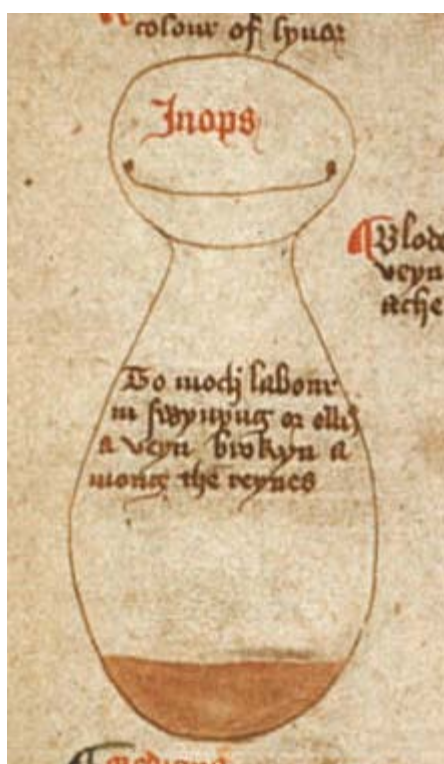 colour of lyuor
Inops
Blod
veyn
ache
To moch labour
in swyuyng or ellis
a veyn brokyn a
mong the reynes